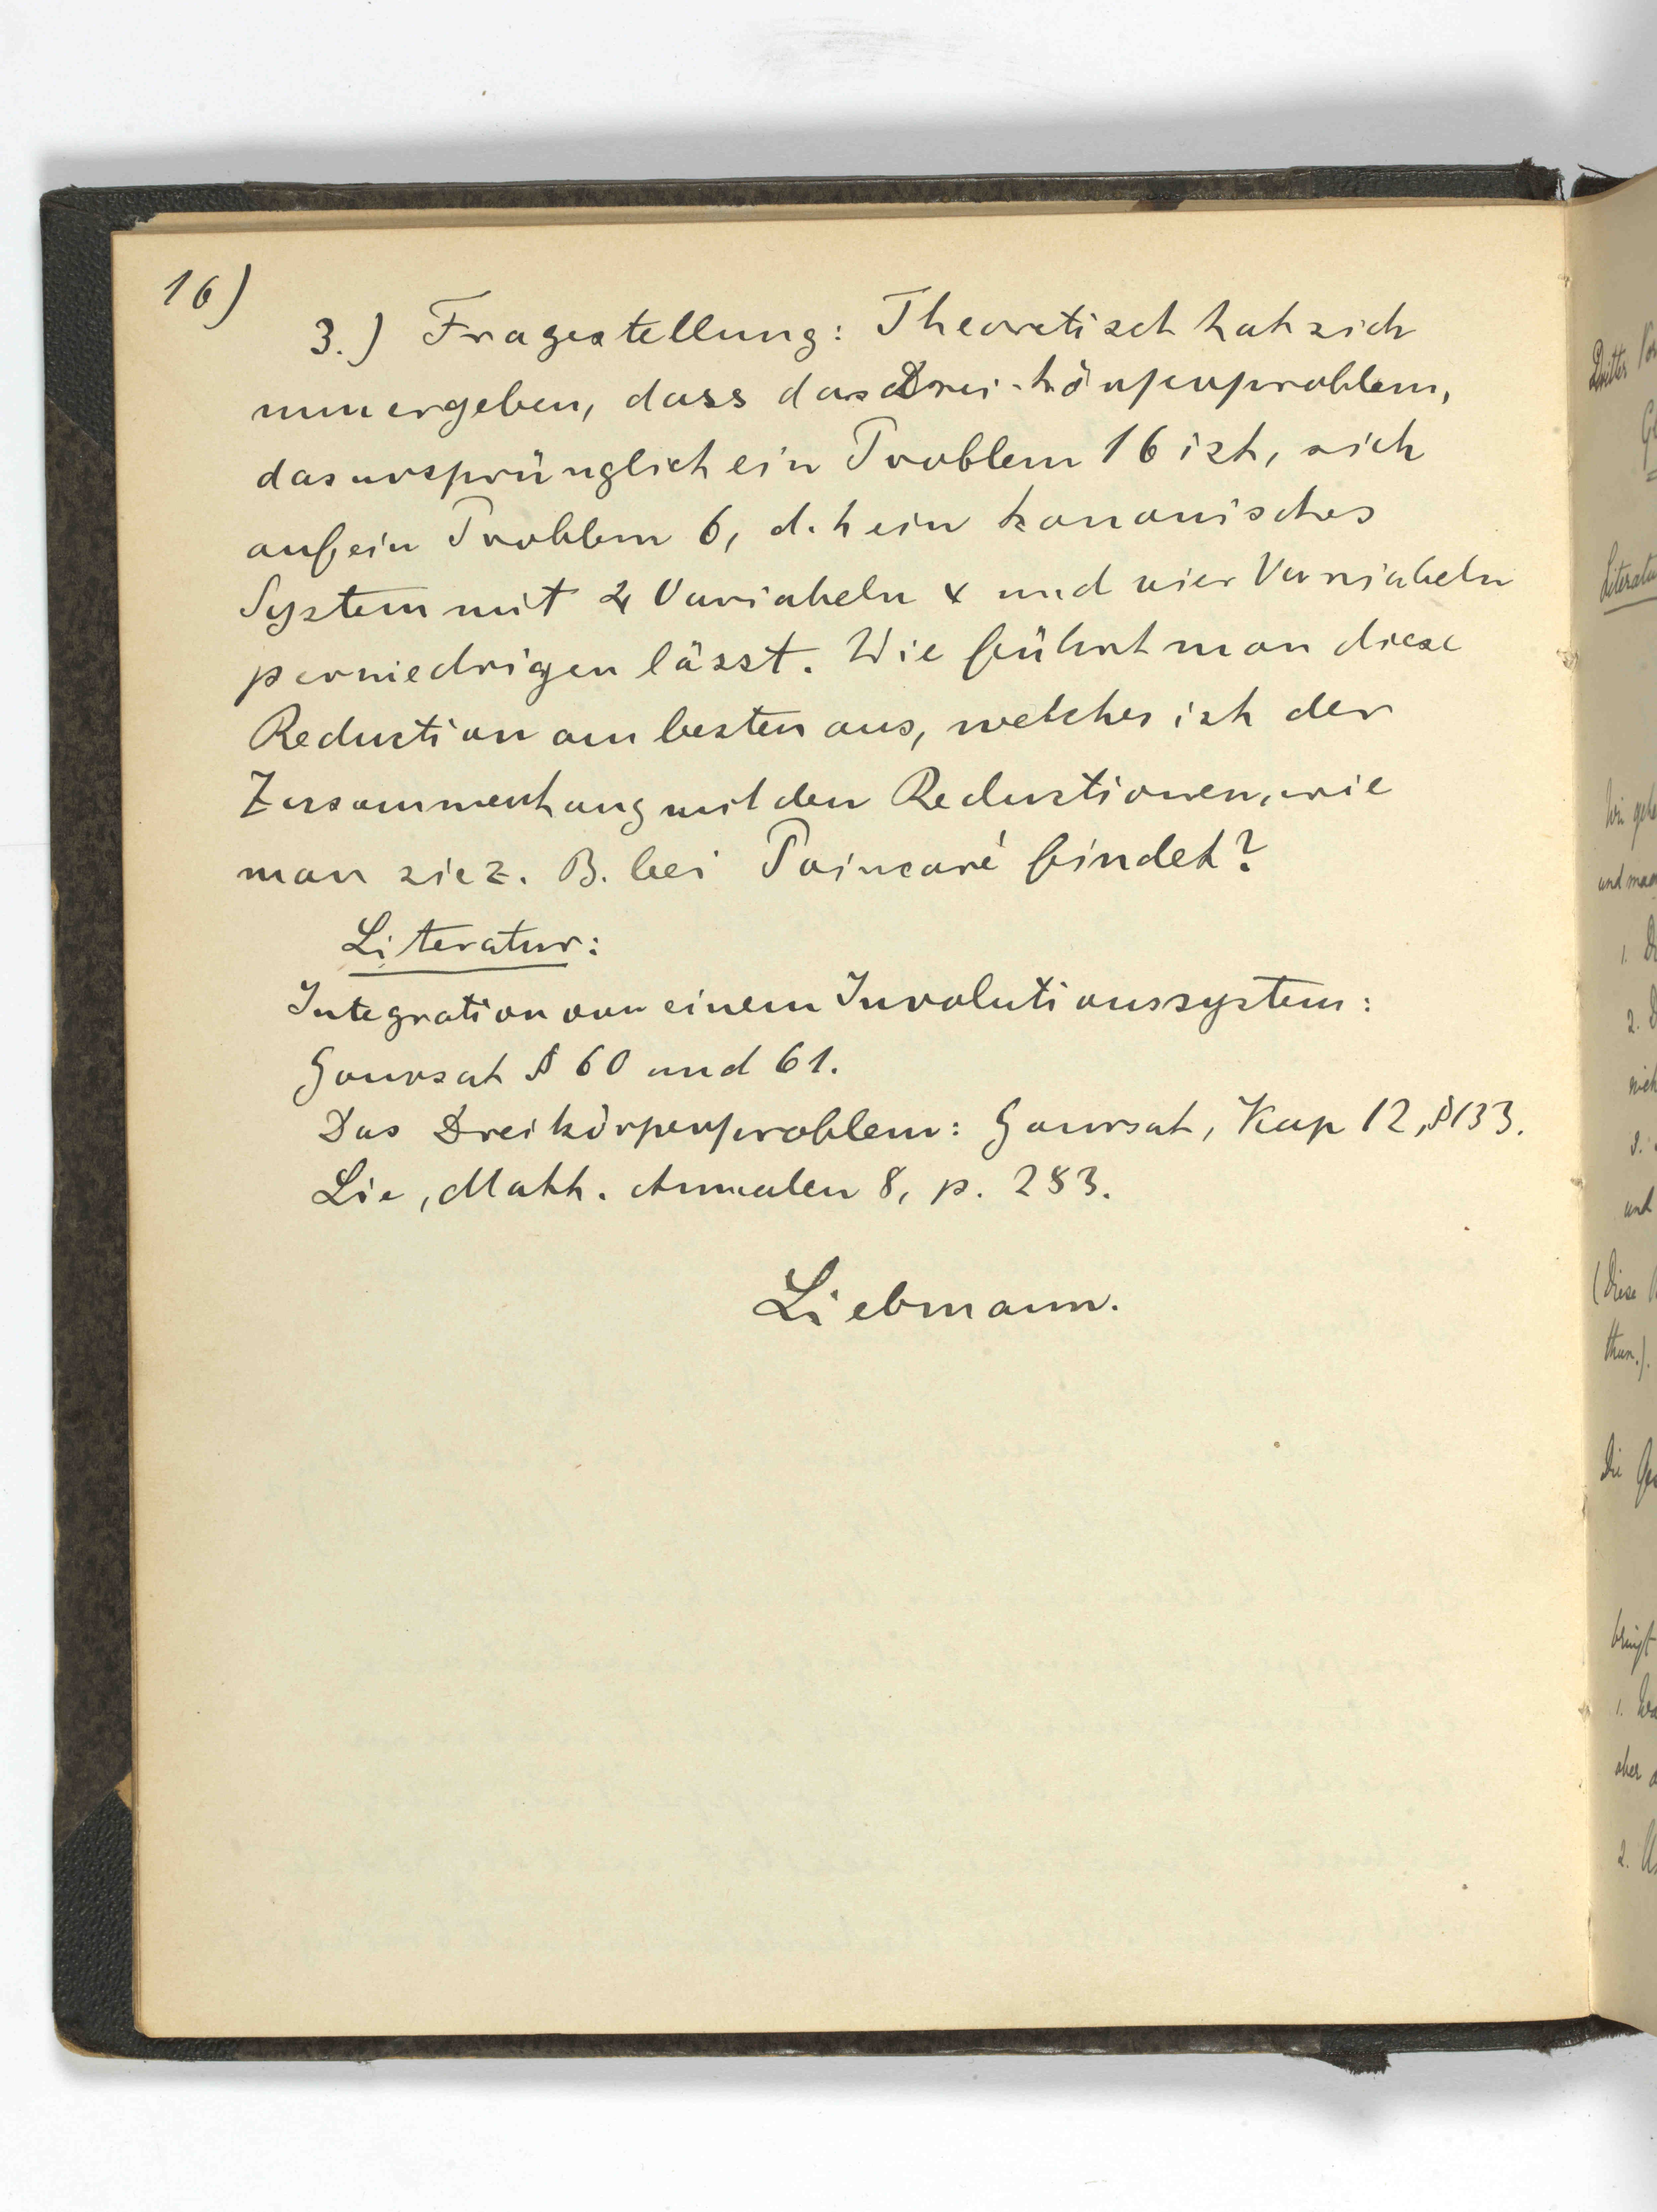 16)
3.) Fragestellung: Theoretisch hat sich
nun ergeben, dass das Drei-körperproblem,
das ursprünglich ein Problem 16 ist, sich
auf ein Problem 6, d. h ein kanonisches
System mit 4 Variabeln x und vier Variabeln
p erniedrigen lässt. Wie führt man diese
Reduction am besten aus, welches ist der
Zusammenhang mit den Reductionen, wie
man sie z. B. bei Poincaré findet?
Literatur:
Integration von einem Involutionssystem:
Goursat § 60 und 61.
Das Dreikörperproblem: Goursat, Kap 12, § 133.
Lie, Math. Annalen 8, p. 283.
Liebmann.
Dritter
Literatu
und
1.
2.
und
(Diese
thun.).
Die
bringt
1.
aber
2.